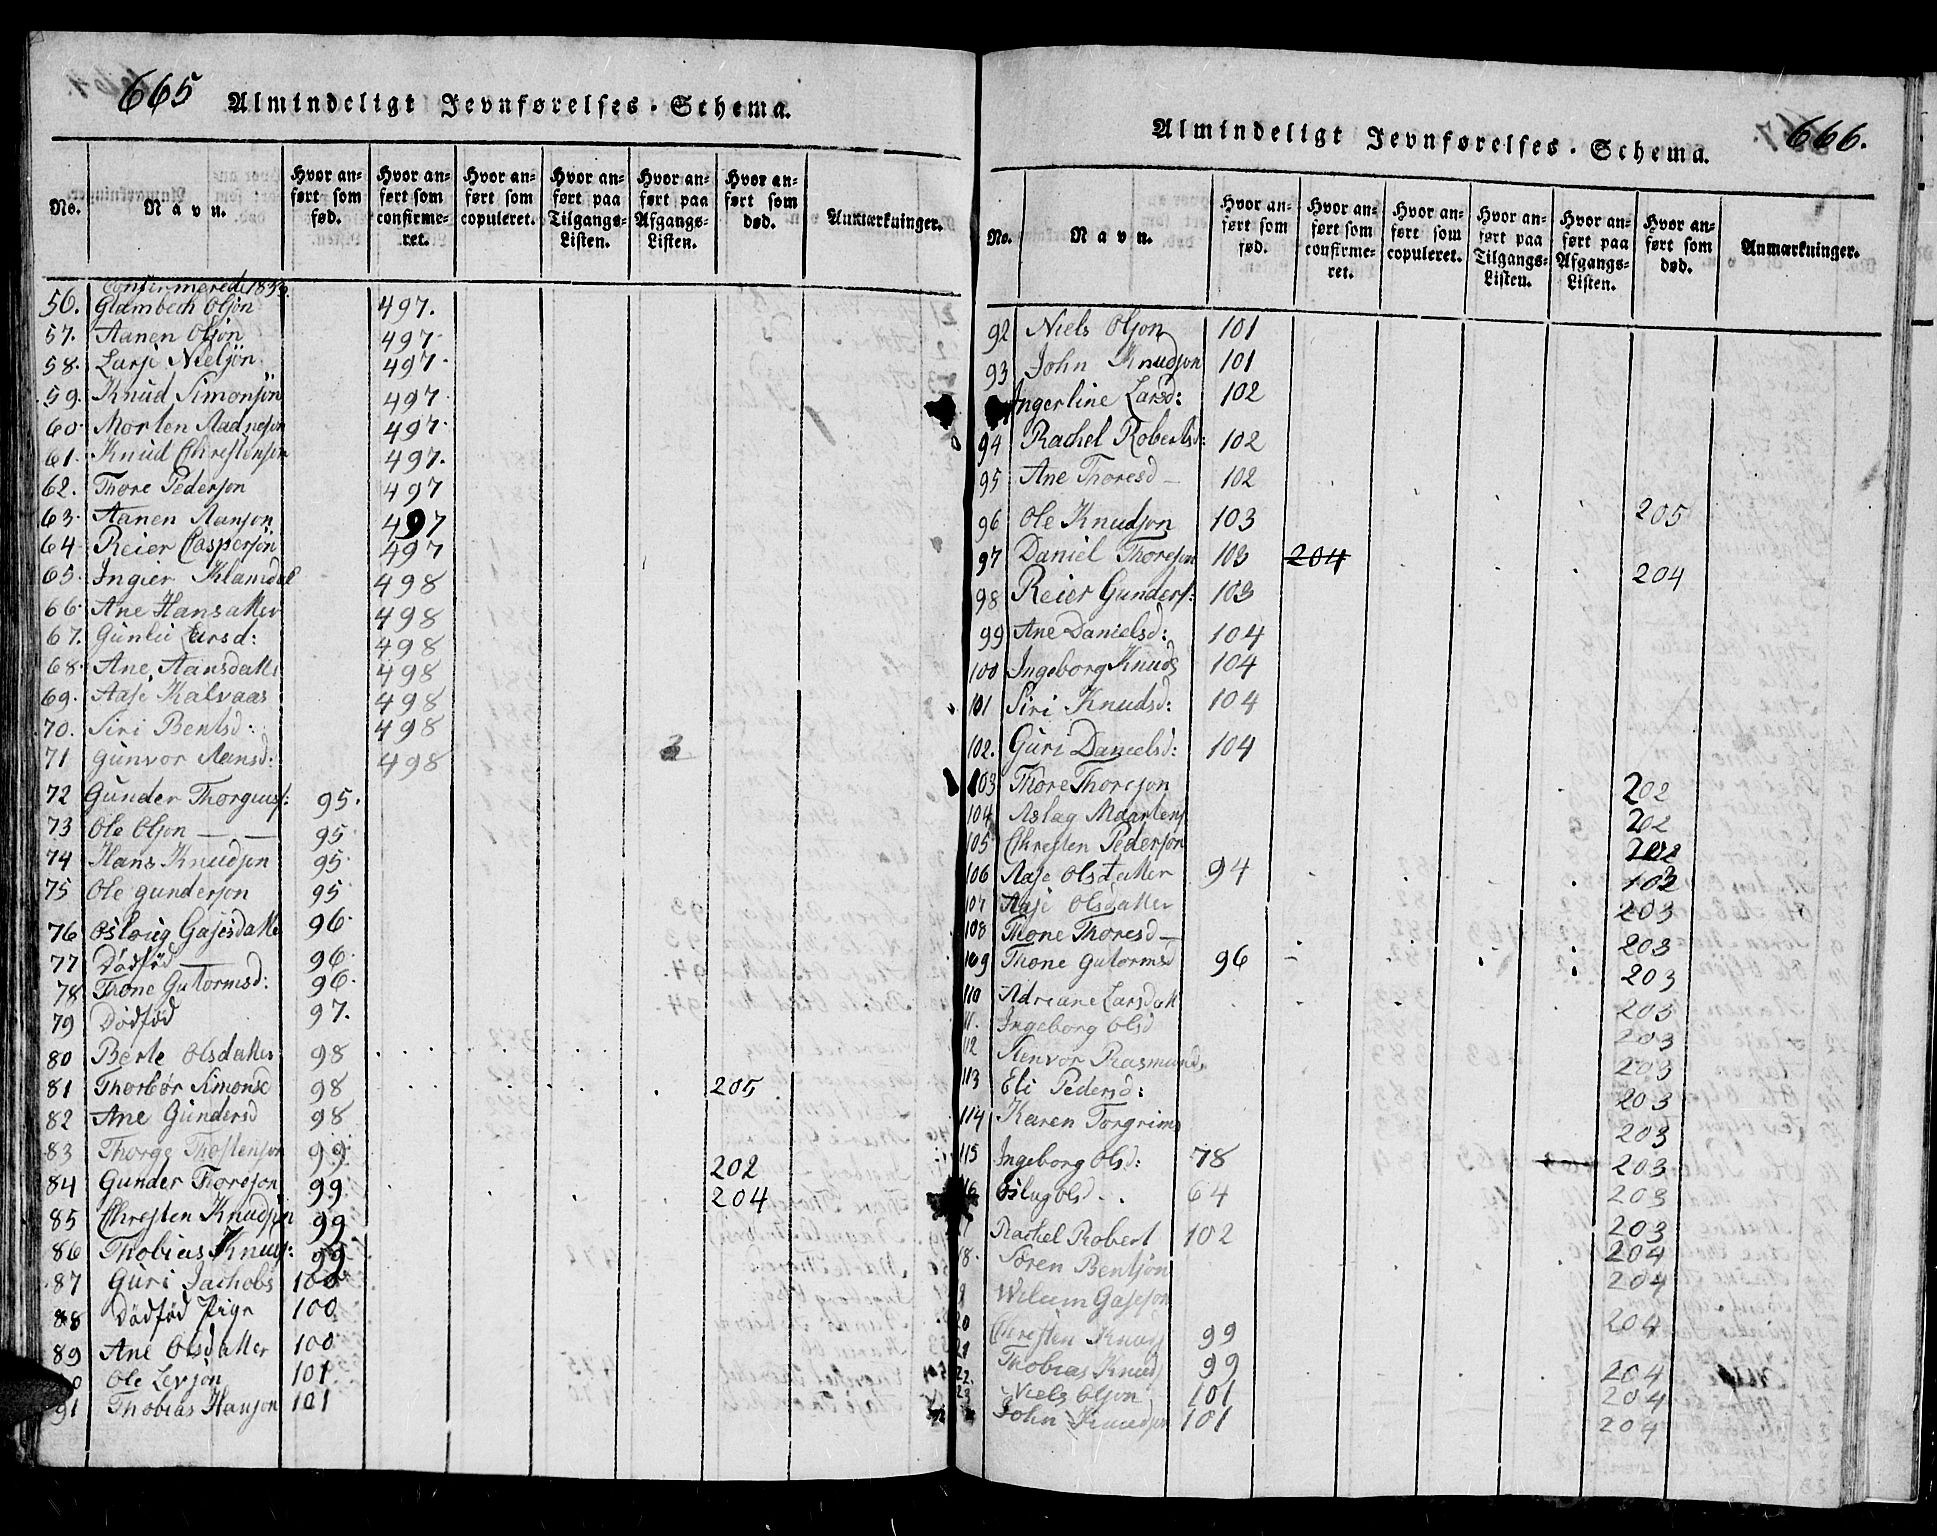 665 Almindeligt Jevnførelses-Schema.
No. Navn. Hvor anført som fød. Hvor anført som confirmeret. Hvor anført som copuleret. Hvor anført paa Tilgangs-Listen. Hvor anført paa Afgangs-Listen. Hvor anført som død. Anmærkninger.
Confirmerede
56. Olsøn 497.
57. Aanen Olsøn 497.
58. Larse Nielsøn 497.
59. Knud Simonsøn 497
60. Morten Aadnesøn 497.
61. Knud Christensøn 497.
62. Thore Pedersøn 497
63. Aanen Aansøn 497
64. Reier Caspersøn 497
65. Ingier 498
66. Ane Hansdatter 498
67. Gunlu Larsd: 498
68. Ane Aansdatter 498
69. Aase Kalvaas 498
70. Siri Bentsd: 498
71 Gunvor Aansd: 498
72 Gunder 95.
73 Ole Olsøn — — 95
74 Hans Knudsøn 95.
75 Ole Gundersøn 95
76 Oslaug Gasesdatter 96.
77 Dødfød 96.
78 Thone Gutormsd: 96.
79 Dødfød 97.
80 Berte Olsdatter 98
81 Thorbør Simonsd 98 205
82 Ane Gundersd 98
83 Thorge Thostensøn 99
84 Gunder Thoresøn 99 202
85 Christen Knudsøn 99 204
86 Thobias Knuds: 99
87 Guri Jachobs 100
88 Dødfød Pige 100
89 Ane Olsdatter 100
Ole Levsøn 101
91 Thobias Hansøn 101
Almindeligt Jevnførelses-Schema. 666.
No. Navn. Hvor anført som fød. Hvor anført som confirmeret. Hvor anført som copuleret. Hvor anført paa Tilgangs-Listen. Hvor anført paa Afgangs-Listen. Hvor anført som død. Anmærkninger.
92 Niels Olsøn 101
93 John Knudsøn 101
Ingerline Larsd: 102
94 Rachel Robertsd: 102
95 Ane Thoresd — 102
96 Ole Knudsøn 103 205
97 Daniel Thoresøn 103 204 204
98 Reier Gunders: 103
99 Ane Danielsd: 104
100 Ingeborg Knuds 104
101 Siri Knudsd: 104
102. Guri Danielsd: 104
103 Thore Thoresøn 202
104 Aslag Maartens 202
105 Christen Pedersøn 202
106 Aase Olsdatter 94 102
107 Aase Olsdatter 203
108 Thone Thoresd — 203
109 Thone Gutormsd 96 203
110 Adriane Larsdatt 203
11. Ingeborg Olsd 203
112 Rasmusd 203
113 Eli Pedersd: 203
114 Karen Torgrims 203
115 Ingeborg Olsd: 78 203
16 Oslug Olsd . . 64 203
17 Rachel Robert 102 203
18. Søren Bentsøn 204
Gasesøn 204
20 Christen Knuds 99 204
21 Thobias Knuds 99 204
22. Niels Olsøn 101 204
23 John Knudsøn 101 204